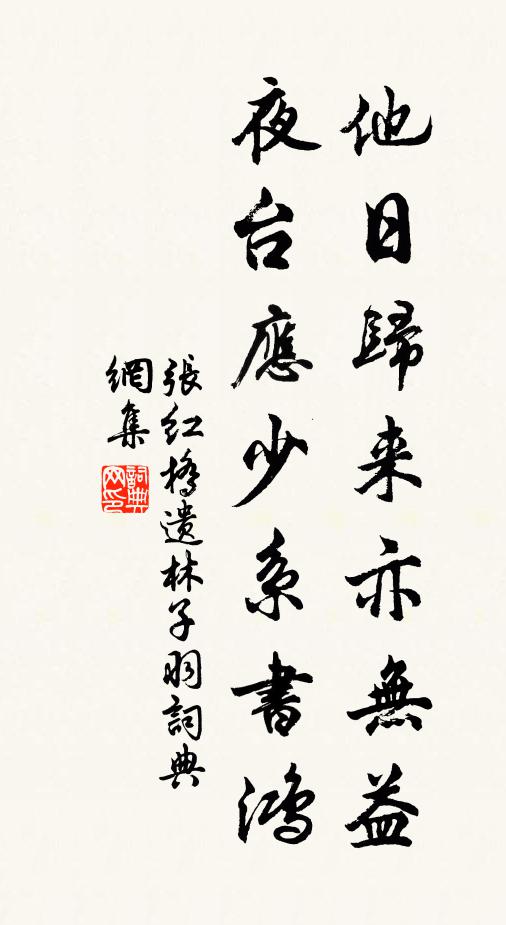 他日歸来亦無益
夜台應少系書鴻
張紅橋遺林子羽詞典
網集
詞典網印